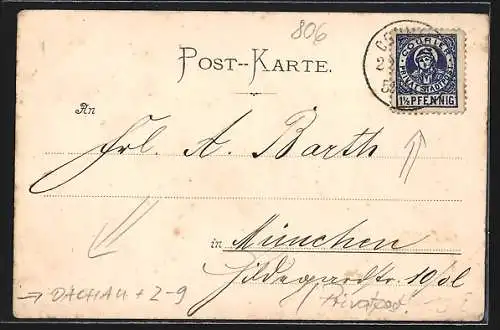 806
POST--KARTE.
COURIER
PRIVAT-STADTPOST
1½ PFENNIG
An
Frl. A. Barth
in München
Hildegardstr. 19
→ DACHAU + Z-9